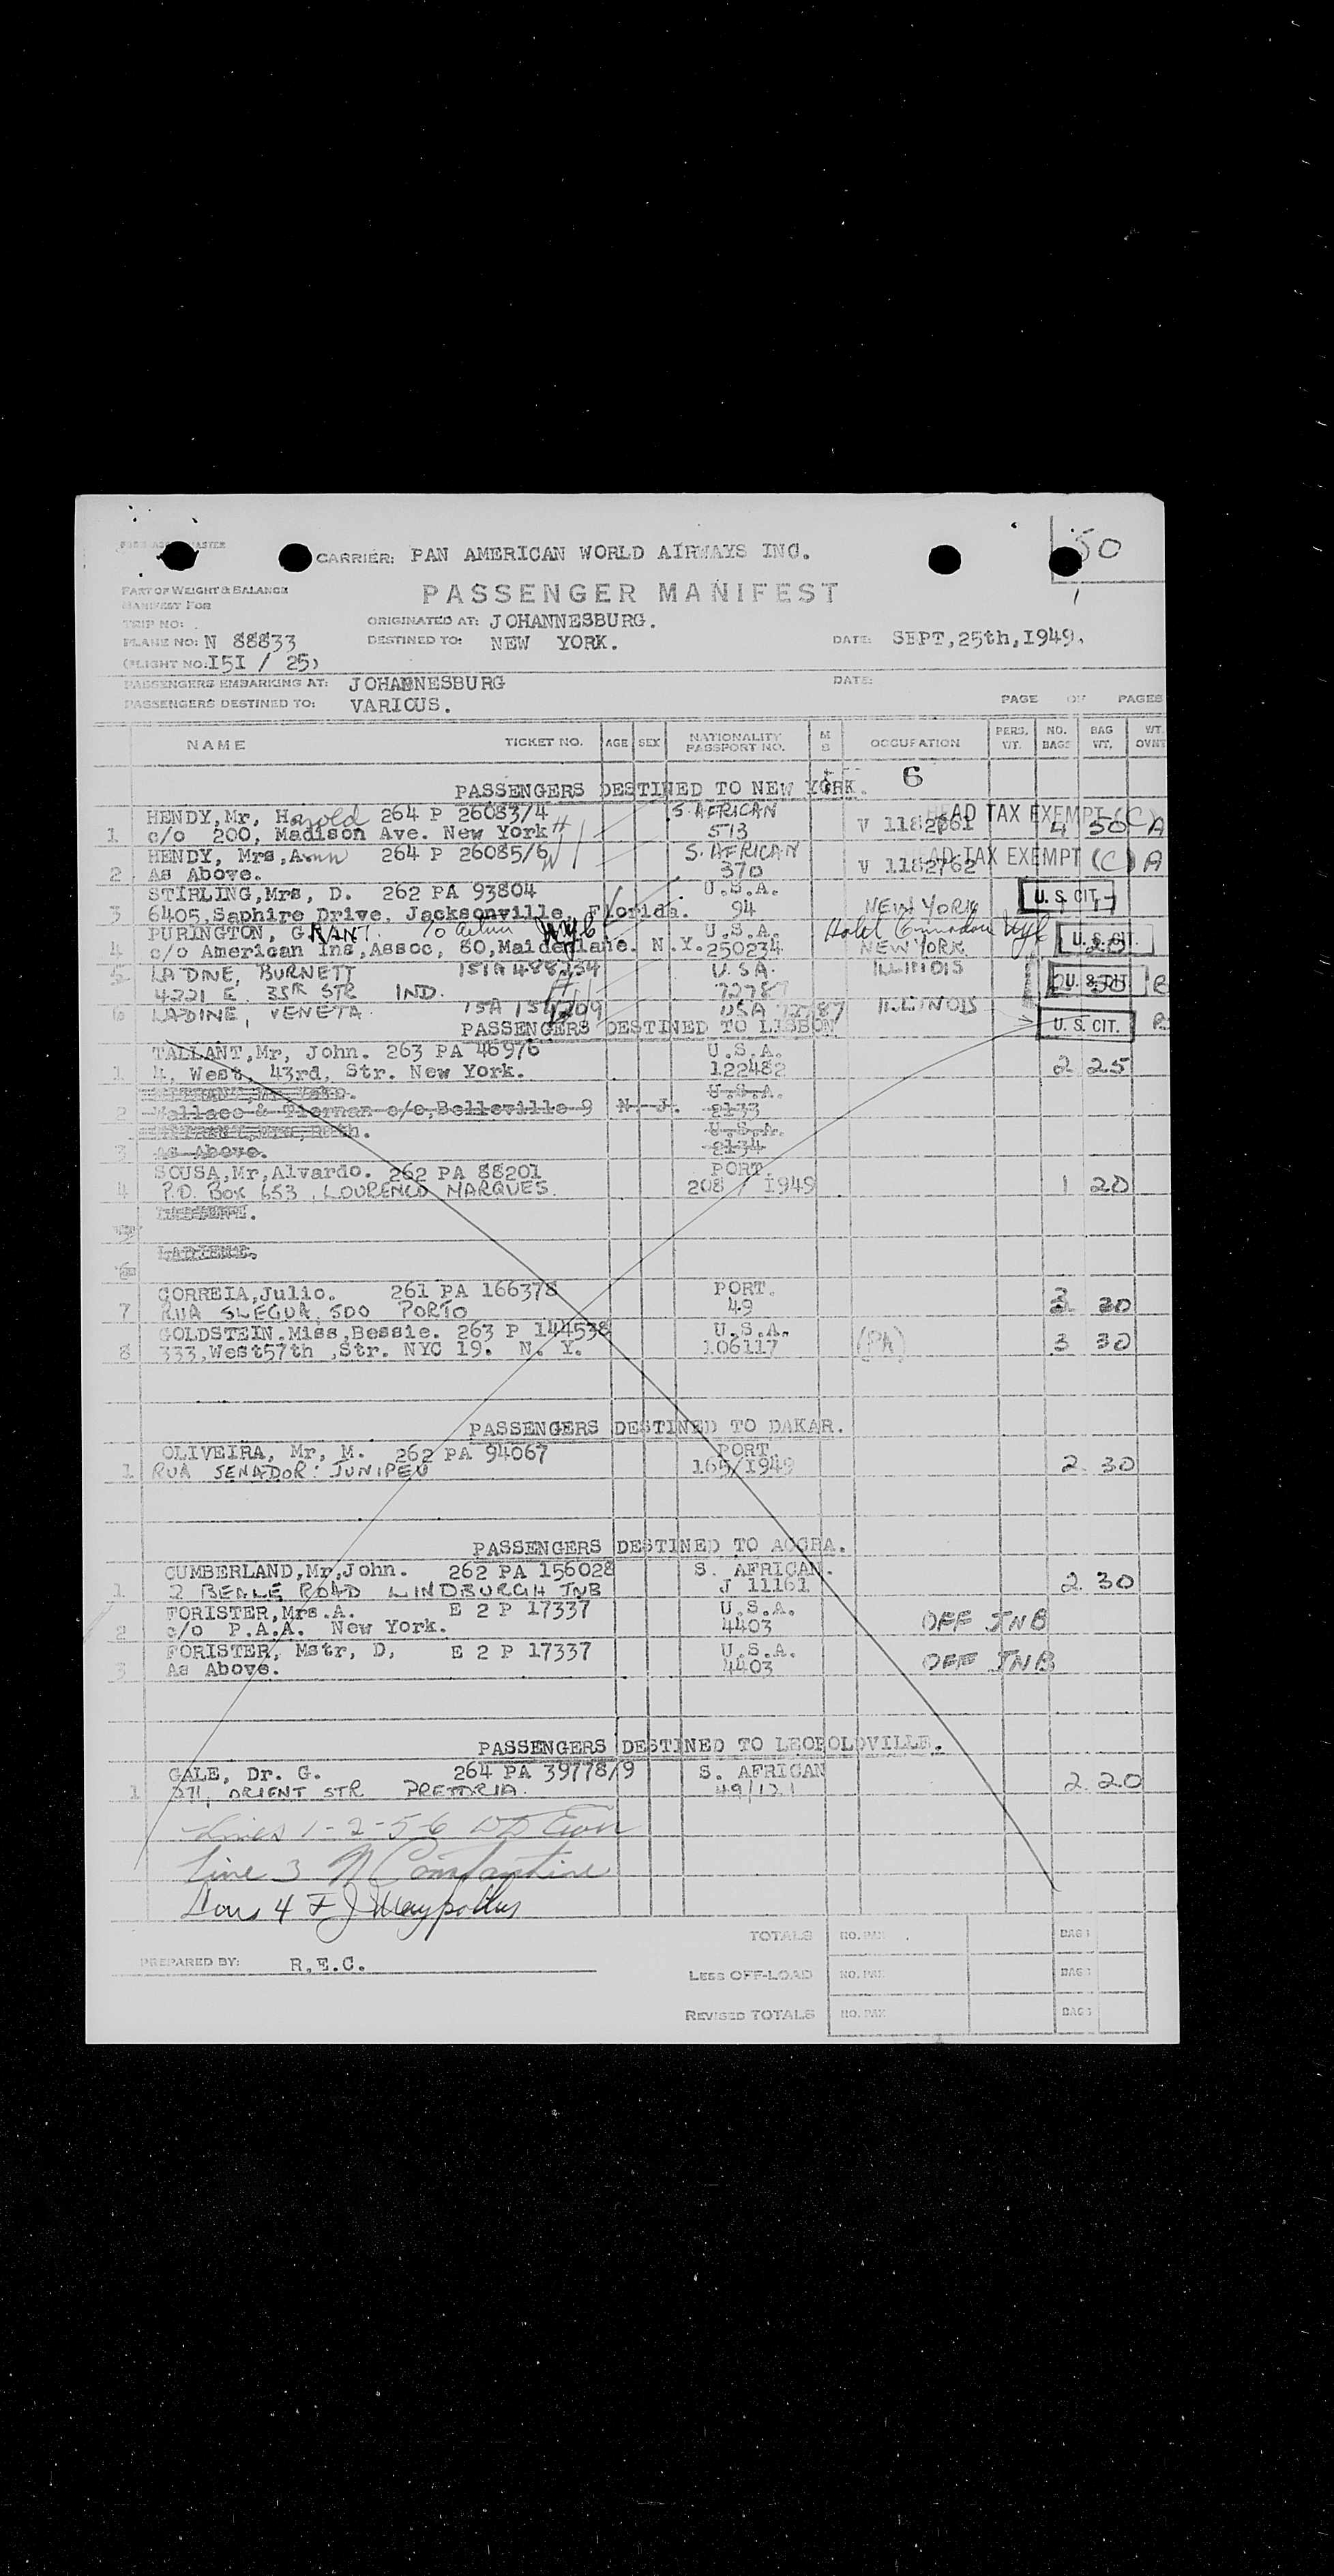 50
CARRIER: PAN AMERICAN WORLD AIRWAYS INC.
PART OF WEIGHT & BALANCE
PASSENGER MANIFEST
MANIFEST FOR
TRIP NO:
ORIGINATED AT: JOHANNESBURG.
PLANE NO: N 88833
DESTINED TO: NEW YORK.
DATE: SEPT,25th,I949.
(FLIGHT NO: I5I / 25)
PASSENGERS EMBARKING AT: JOHANNESBURG
DATE:
PASSENGERS DESTINED TO: VARIOUS.
PAGE OF PAGES
NAME TICKET NO. AGE SEX NATIONALITY PASSPORT NO. M S OCCUPATION PERS. WT. NO. BAGS BAG WT. WT. OVNT
PASSENGERS DESTINED TO NEW YORK. 6
HENDY,Mr, Harold 264 P 26083/4 S. AFRICAN HEAD TAX EXEMPT (C) A
1 c/o 200, Madison Ave. New York 513 V 1182761 4 50
HENDY, Mrs,Ann 264 P 26085/6 S. AFRICAN HEAD TAX EXEMPT (C) A
2 As Above. 370 V 1182762
STIRLING,Mrs, D. 262 PA 93804 U.S.A. U. S. CIT.
3 6405,Saphire Drive, Jacksonville, Florida. 94 NEW YORK
PURINGTON, GRANT. U.S.A. Hotel
4 c/o American Ins,Assoc, 80,Maidenlane. N.Y. 250234 NEW YORK U. S. CIT.
5 LA DINE, BURNETT U.S.A. ILLINOIS
4221 E. 35R STR IND. U. S. CIT.
6 LADINE, VENETA USA 72787 ILLINOIS
PASSENGERS DESTINED TO LISBON U. S. CIT.
TALLANT,Mr, John. 263 PA 46976 U.S.A.
1 4, West, 43rd, Str. New York. 122482 2 25
U.S.A.
2 Wallace & Tiernan c/o,Belleville 9 N. J. 2133
U.S.A.
3 As Above. 2134
SOUSA,Mr,Alvardo. 262 PA 88201 PORT.
4 P.O. Box 653, LOURENCO MARQUES. 208 / I949 1 20
5
6
CORREIA,Julio. 261 PA 166378 PORT.
7 RUA SLEGUA, 500 PORTO 49 20
GOLDSTEIN.Miss,Bessie. 263 P 144538 U.S.A.
8 333,West57th ,Str. NYC 19. N. Y. 106117 (PA) 3 30
PASSENGERS DESTINED TO DAKAR.
OLIVEIRA, Mr, M. 262 PA 94067 PORT
1 RUA SENADOR JUNIPEU 165/I949 2 30
PASSENGERS DESTINED TO ACCRA.
CUMBERLAND,Mr,John. 262 PA 156028 S. AFRICAN.
1 2 BEALE ROAD LINDBURGH JNB J 11161 2 30
FORISTER,Mrs.A. E 2 P 17337 U.S.A.
2 c/o P.A.A. New York. 4403 OFF JNB
FORISTER, Mstr, D, E 2 P 17337 U.S.A.
3 As Above. 4403 OFF JNB
PASSENGERS DESTINED TO LEOPOLDVILLE.
GALE, Dr. G. 264 PA 39778/9 S. AFRICAN
1 271, ORIENT STR PRETORIA. 2 20
Lines 1-2-5-6
Line 3 Constantine
4 F J
TOTALS NO. PAX BAGS
PREPARED BY: R.E.C.
LESS OFF-LOAD NO. PAX BAGS
REVISED TOTALS NO. PAX BAGS